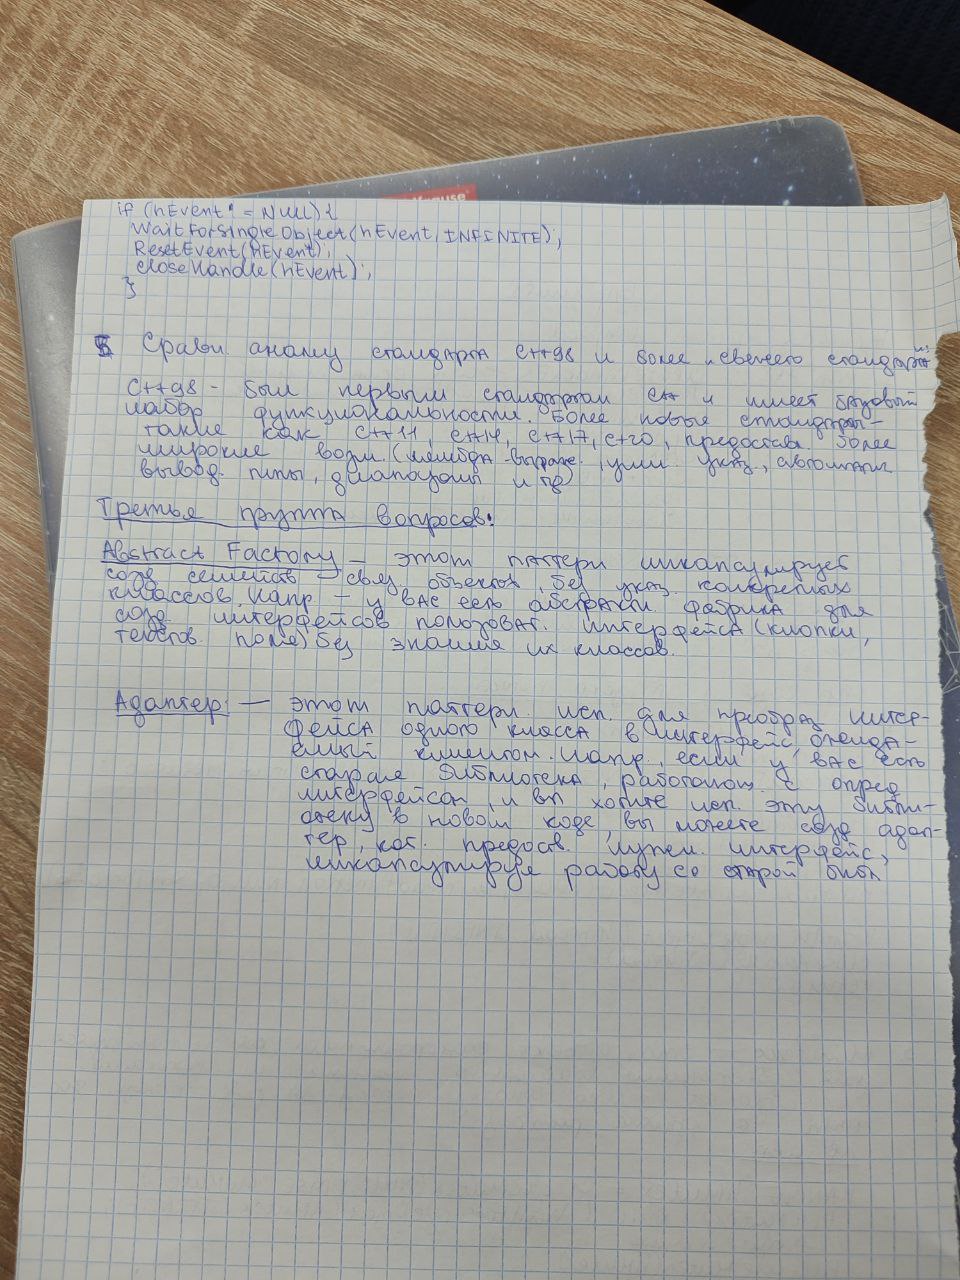 Krause
if (hEvent != Null) {
WaitForSingleObject(hEvent, INFINITE);
ResetEvent(hEvent);
CloseHandle(hEvent);
}
5 Сравн. анализ стандарта C++98 и более свежего стандарта
C++98 - был первым стандартом C++ и имеет базовый
набор функциональности. Более новые стандарты -
такие как C++11, C++14, C++17, C++20, предостав более
широкие возм. (лямбда-выраже., умн. указ., автоматич
вывод. типы, диапазоны и тд)
Третья группа вопросов:
Abstract Factory - этот паттерн инкапсулирует
созд семейств связ объектов без указ. конкретных
классов. Напр - у вас есть абстрактн фабрика для
созд интерфейсов пользоват. интерфейса (кнопки,
текстов поле) без знания их классов.
Адаптер: — этот паттерн исп. для преобраз интер-
фейса одного класса в интерфейс, ожида-
емый клиентом. Напр, если у вас есть
старая библиотека, работающ. с опред
интерфейсом, и вы хотите исп. эту библи-
отеку в новом коде, вы можете созд адап-
тер, кот. предостав. нужн. интерфейс,
инкапсулируя работу со старой библ